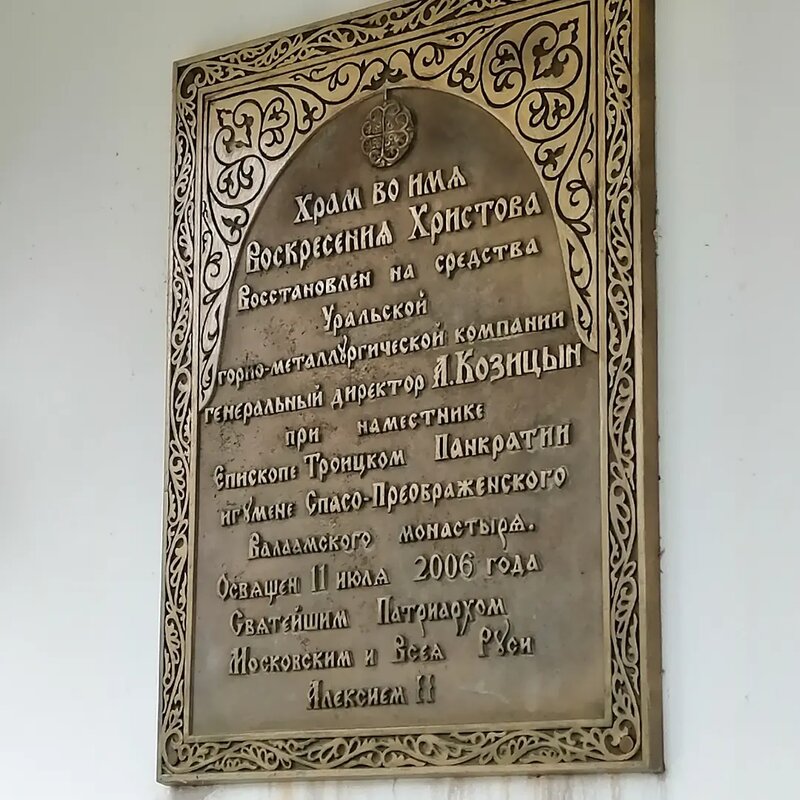 Храм во имя
Воскресения Христова
Восстановлен на средства
Уральской
горно-металлургической компании
генеральный директор А.Козицын
при наместнике
Епископе Троицком Панкратии
игумене Спасо-Преображенского
Валаамского монастыря.
Освящен 11 июля 2006 года
Святейшим Патриархом
Московским и Всея Руси
Алексием II